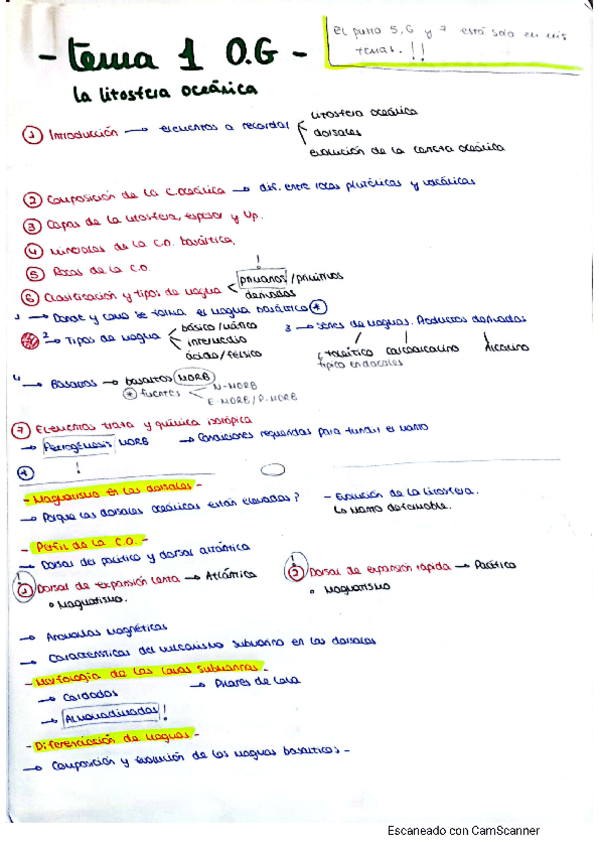 - tema 1 O.G -
El punto 5, 6 y 7 está solo en mis
temas. !!
la litosfera oceánica
① Introducción → elementos a recordar
litosfera oceánica
dorsales
evolución de la corteza oceánica
② Composición de la C.oceánica → dif. entre rocas plutónicas y volcánicas
③ Capas de la litosfera, espesor y Vp.
④ Minerales de la C.O. basáltica.
⑤ Rocas de la C.O.
⑥ Clasificación y tipos de magma
!
primarios / primitivos
derivados
1 → Donde y como se forma el magma basáltico *
2 → Tipos de magma
básico / máfico
intermedio
ácido / félsico
3 → series de magmas. Productos derivados
toleítico calcoalcalino Alcalino
típico en dorsales
4 → Basaltos → basaltos MORB
* fuentes
N-MORB
E-MORB / P-MORB
⑦ Elementos traza y química isotópica
→ Petrogénesis MORB → Condiciones requeridas para fundir el manto
!
- Magmatismo en las dorsales -
→ Porque las dorsales oceánicas están elevadas?
- Evolución de la litosfera.
↳ Manto deformable.
- Perfil de la C.O. -
→ Dorsal del pacífico y dorsal atlántica
! ① Dorsal de expansión lenta → Atlántica
! ② Dorsal de expansión rápida → Pacífica
• Magmatismo.
• Magmatismo
→ Anomalías magnéticas
→ Características del vulcanismo submarino en las dorsales
- Morfología de las lavas submarinas -
→ Cordadas → Pilares de lava
→ Almohadilladas !
- Diferenciación de magmas -
→ Composición y evolución de los magmas basálticos -
Escaneado con CamScanner